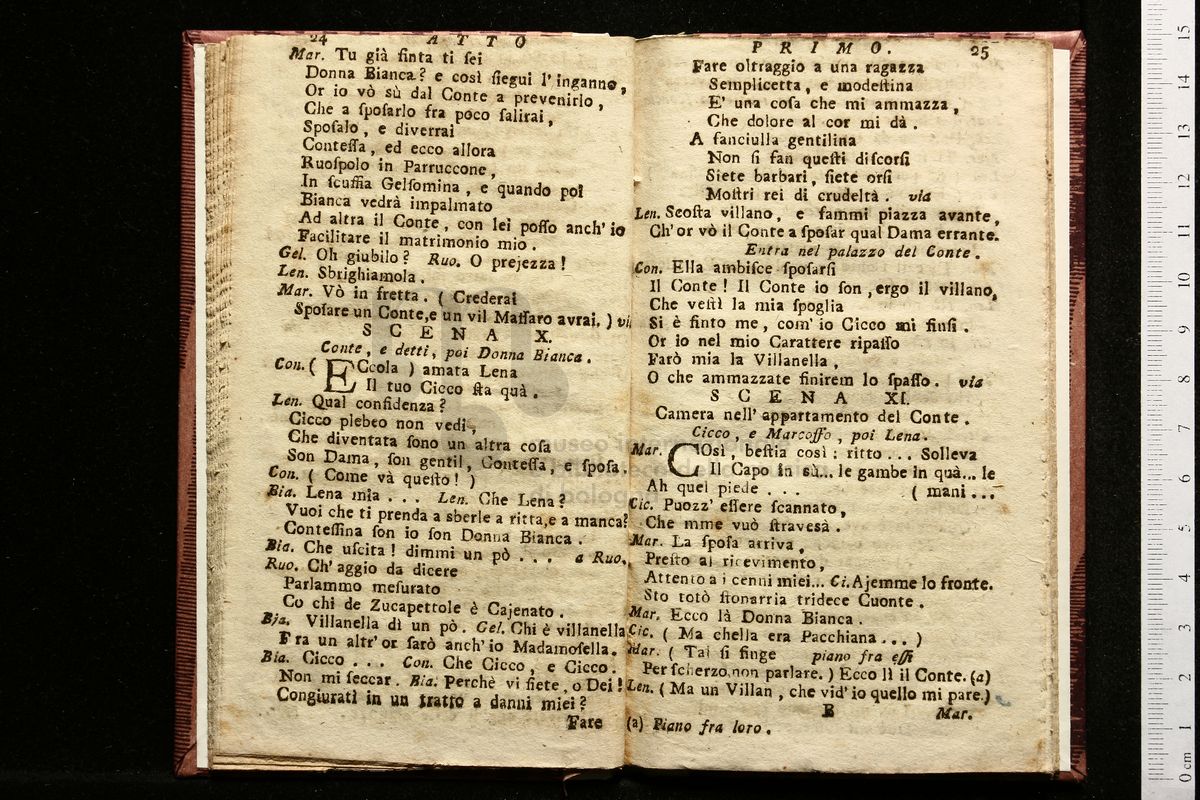 24 ATTO
Mar. Tu già finta ti ſei
Donna Bianca? e così ſiegui l'inganno,
Or io vò sù dal Conte a prevenirlo,
Che a ſpoſarlo fra poco ſalirai,
Spoſalo, e diverrai
Conteſſa, ed ecco allora
Ruoſpolo in Parruccone,
In ſcuffia Gelſomina, e quando poi
Bianca vedrà impalmato
Ad altra il Conte, con lei poſſo anch'io
Facilitare il matrimonio mio.
Gel. Oh giubilo? Ruo. O prejezza!
Len. Sbrighiamola.
Mar. Vò in fretta. ( Crederai
Spoſare un Conte,e un vil Maſſaro avrai. ) vi
SCENA X.
Conte, e detti, poi Donna Bianca.
Con. ( ECcola ) amata Lena
Il tuo Cicco ſta quà.
Len. Qual confidenza?
Cicco plebeo non vedi,
Che diventata ſono un altra coſa
Son Dama, ſon gentil, Conteſſa, e ſpoſa.
Con. ( Come và queſto! )
Bia. Lena mia ... Len. Che Lena?
Vuoi che ti prenda a sberle a ritta,e a manca?
Conteſſina ſon io ſon Donna Bianca.
Bia. Che uſcita! dimmi un pò ... a Ruo.
Ruo. Ch'aggio da dicere
Parlammo meſurato
Co chi de Zucapettole è Cajenato.
Bia. Villanella dì un pò. Gel. Chi è villanella
Fra un altr'or ſarò anch'io Madamoſella.
Bia. Cicco ... Con. Che Cicco, e Cicco.
Non mi ſeccar. Bia. Perchè vi ſiete, o Dei!
Congiurati in un tratto a danni miei?
Fare
PRIMO. 25
Fare oltraggio a una ragazza
Semplicetta, e modeſtina
E' una coſa che mi ammazza,
Che dolore al cor mi dà.
A fanciulla gentilina
Non ſi fan queſti diſcorſi
Siete barbari, ſiete orſi
Moſtri rei di crudeltà. via
Len. Scoſta villano, e fammi piazza avante,
Ch'or vò il Conte a ſpoſar qual Dama errante.
Entra nel palazzo del Conte.
Con. Ella ambiſce ſpoſarſi
Il Conte! Il Conte io ſon, ergo il villano,
Che veſtì la mia ſpoglia
Si è finto me, com'io Cicco mi finſi.
Or io nel mio Carattere ripaſſo
Farò mia la Villanella,
O che ammazzate finirem lo ſpaſſo. via
SCENA XI.
Camera nell'appartamento del Conte.
Cicco, e Marcoffo, poi Lena.
Mar. COsì, beſtia così: ritto ... Solleva
Il Capo in sù... le gambe in quà... le
Ah quel piede ... ( mani ...
Cic. Puozz'eſſere ſcannato,
Che mme vuò ſtravesà.
Mar. La ſpoſa arriva,
Preſto al ricevimento,
Attento a i cenni miei... Ci. Ajemme lo fronte.
Sto totò ſtonarria tridece Cuonte.
Mar. Ecco là Donna Bianca.
Cic. ( Ma chella era Pacchiana ... )
Mar. ( Tal ſi finge piano fra eſſi
Per ſcherzo,non parlare. ) Ecco lì il Conte. (a)
Len. ( Ma un Villan, che vid'io quello mi pare.)
B Mar.
(a) Piano fra loro.